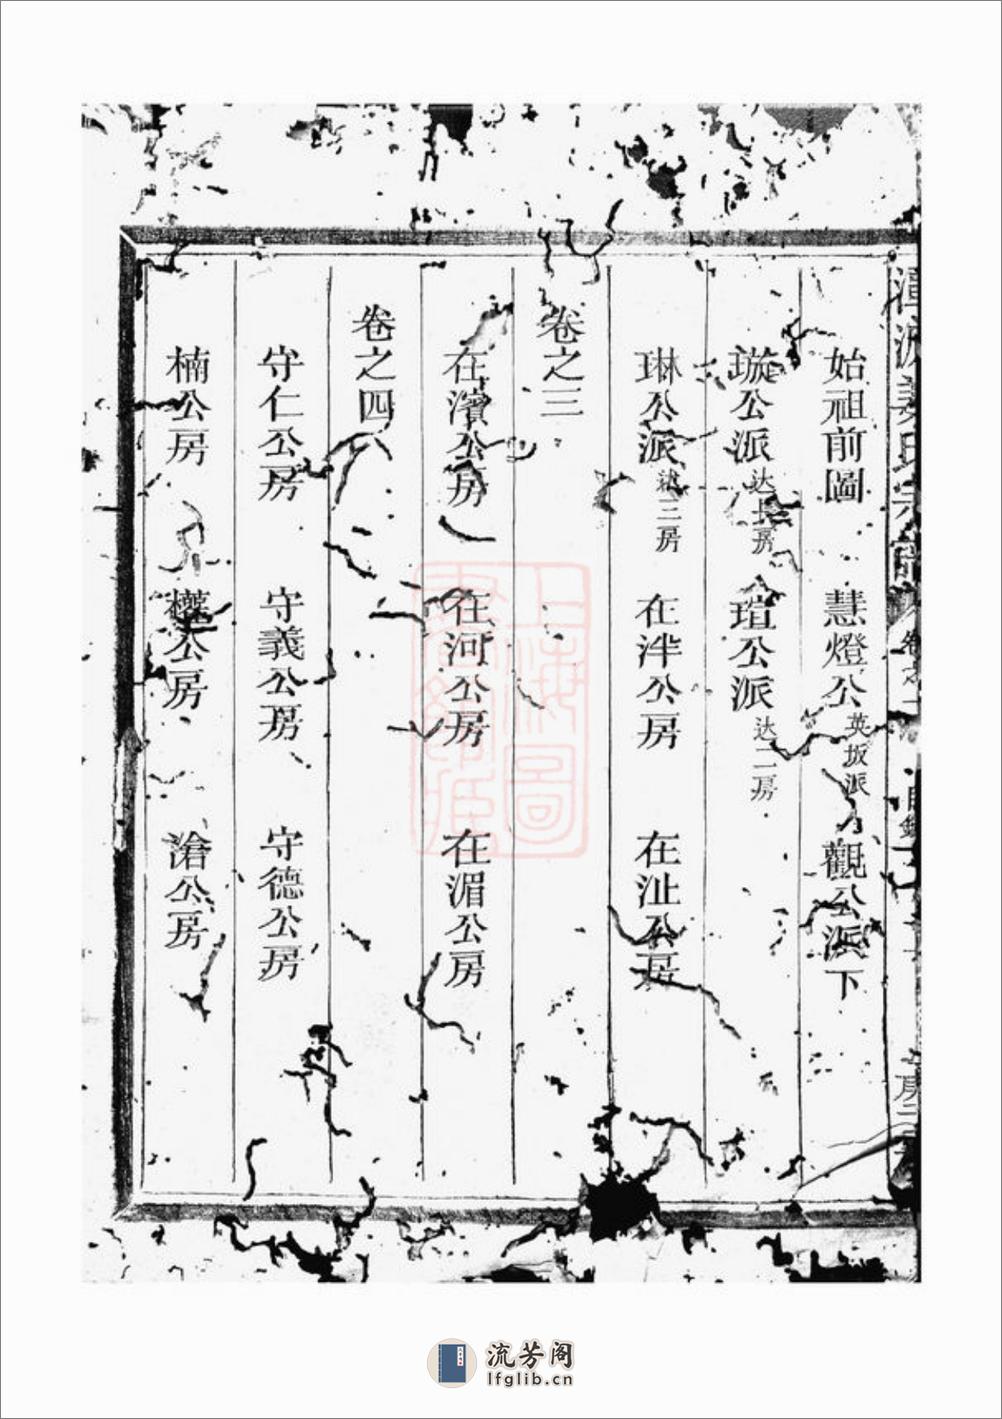 姜氏宗譜 卷之一 目錄
始祖前圖 慧燈公英坂派 觀公派下
璇公派达長房 瑄公派达二房
琳公派达三房 在泮公房 在沚公房
卷之三
在濱公房 在河公房 在湄公房
卷之四
守仁公房 守義公房 守德公房
楠公房 公房 滄公房
上海圖書館藏
流芳阁
lfglib.cn